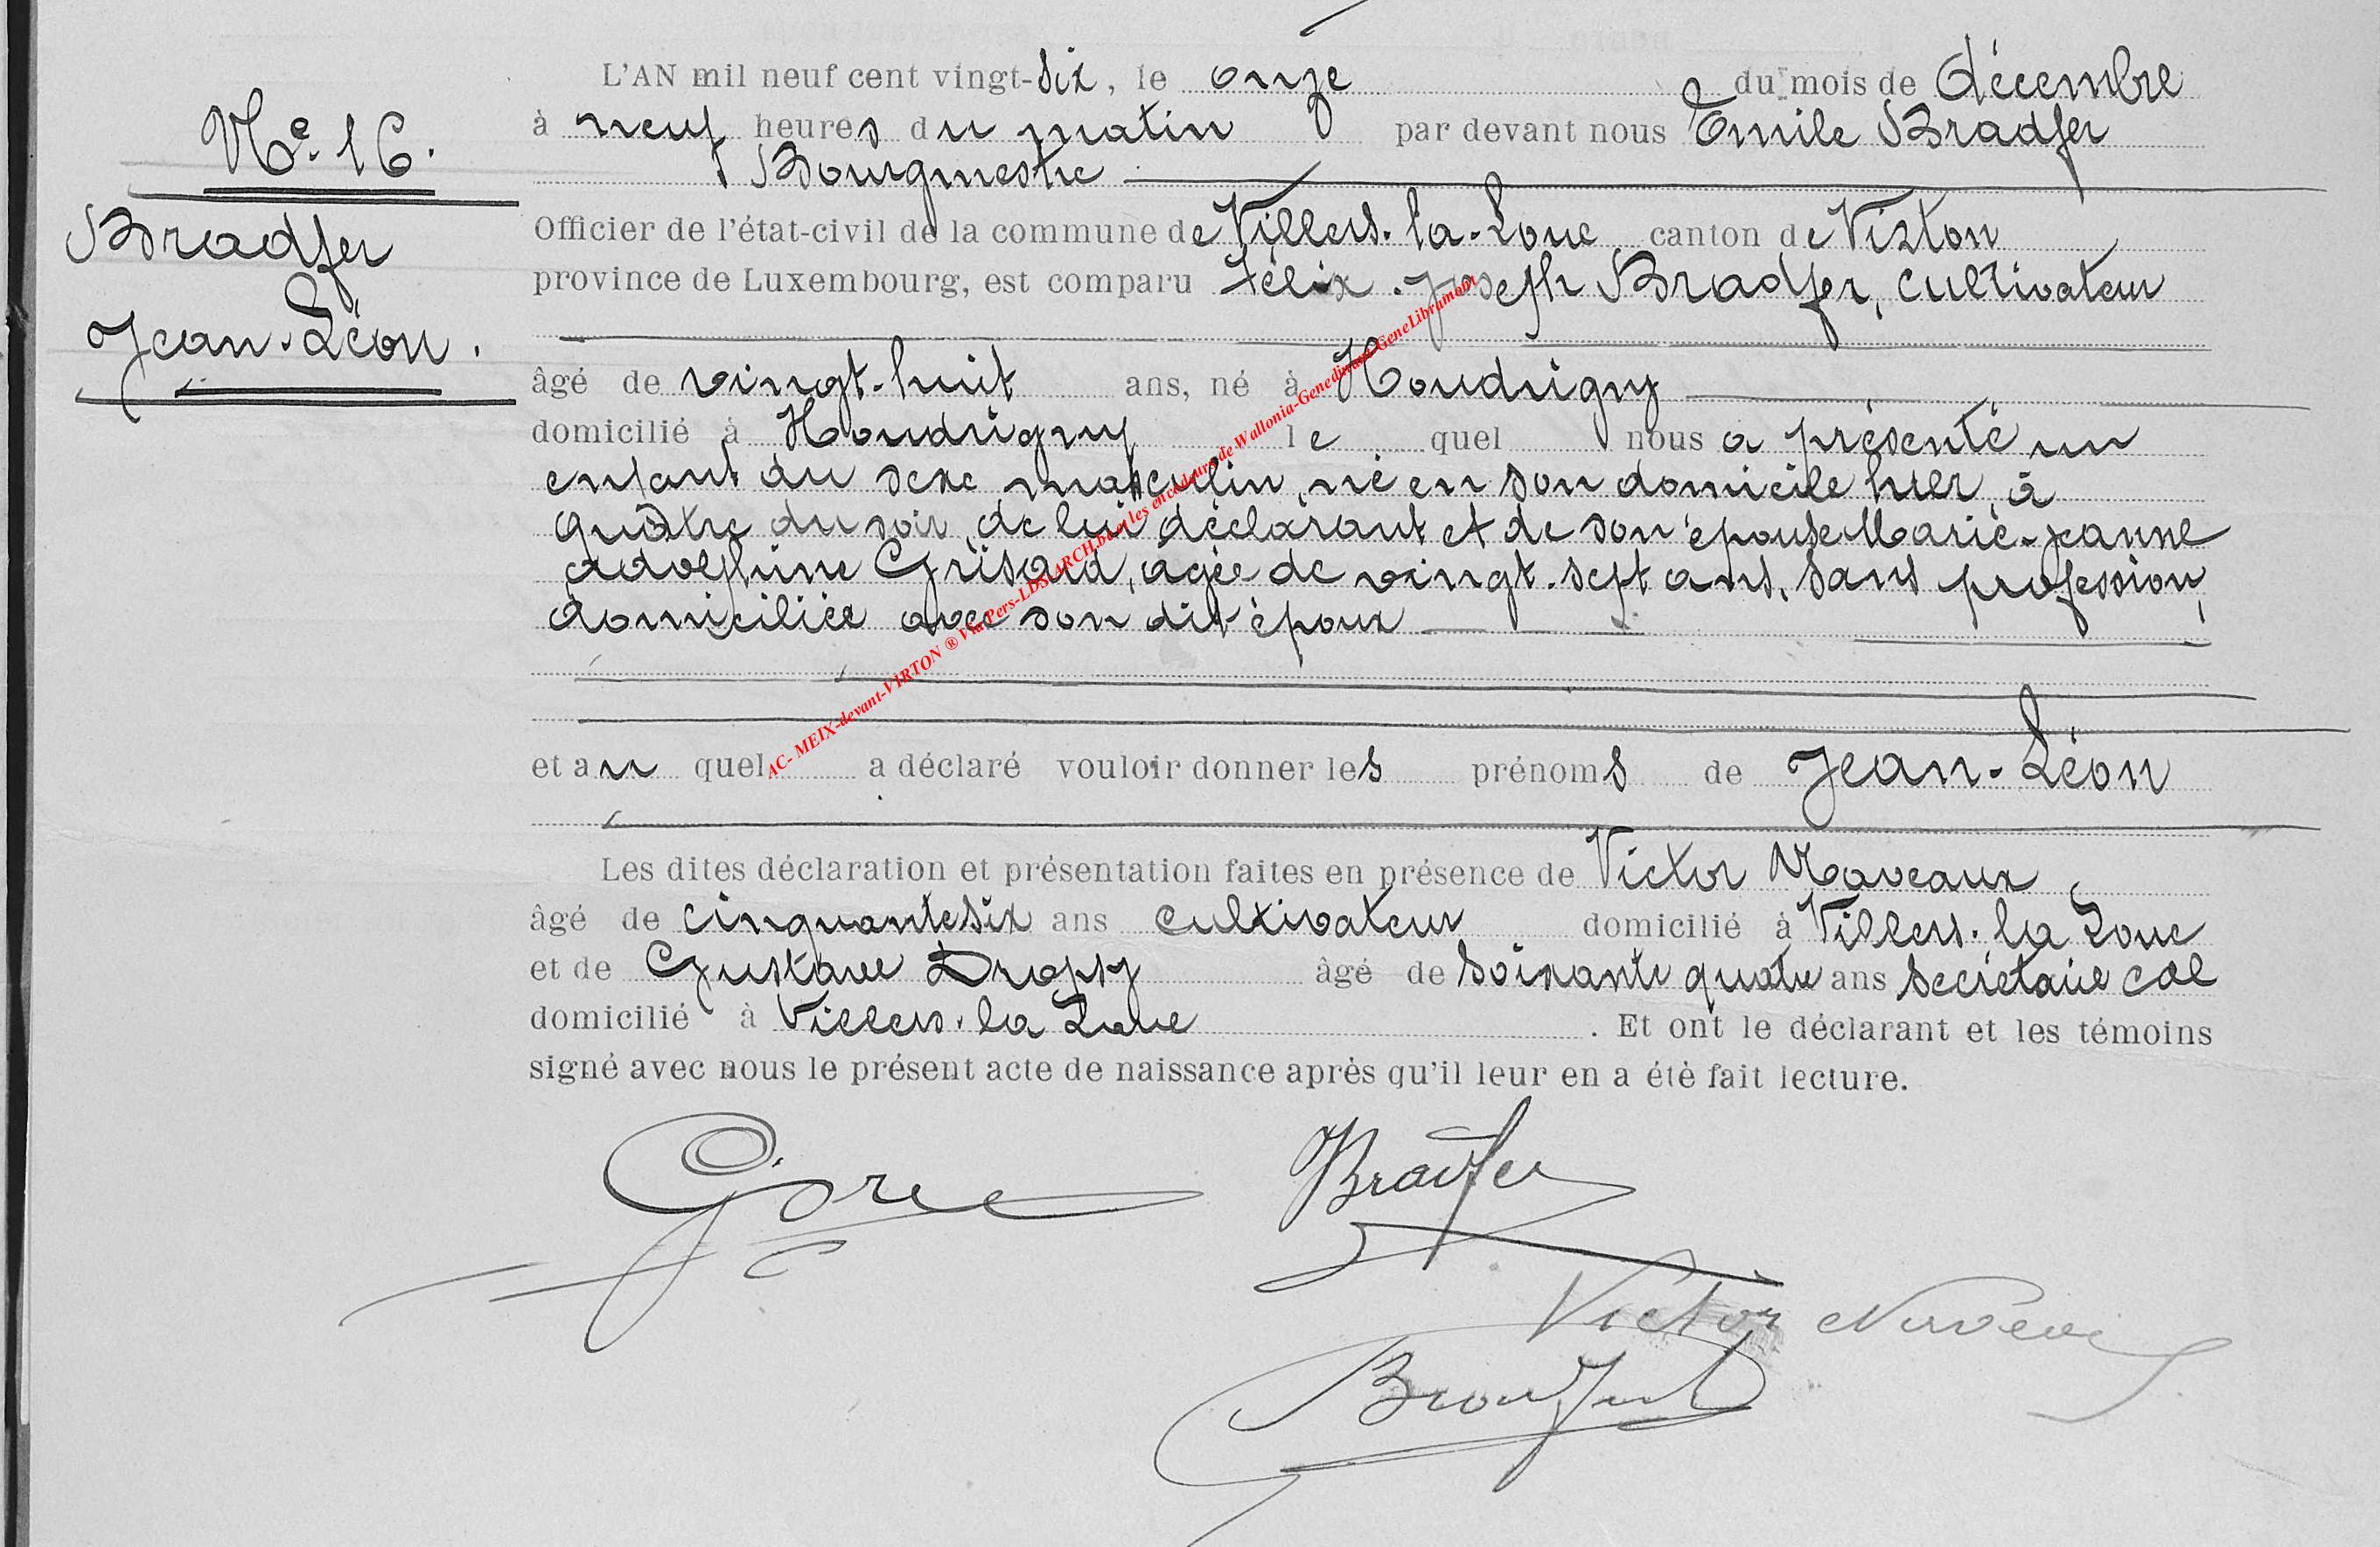 L'AN mil neuf cent vingt-six, le onze du mois de décembre
à neuf heures du matin par devant nous Emile Bradfer
Bourgmestre
Officier de l'état-civil de la commune de Villers-la-Loue canton de Virton
province de Luxembourg, est comparu Félix-Joseph Bradfer, cultivateur
âgé de vingt-huit ans, né à Houdrigny
domicilié à Houdrigny le quel nous a présenté un
enfant du sexe masculin, né en son domicile hier, à
quatre du soir, de lui déclarant et de son épouse Marie-Jeanne
Adolphine Grisard, agée de vingt-sept ans, sans profession,
domiciliée avec son dit époux
et au quel a déclaré vouloir donner les prénoms de Jean-Léon
Les dites déclaration et présentation faites en présence de Victor
âgé de cinquante six ans cultivateur domicilié à Villers-la Loue
et de Gustave Dropsy âgé de soixante quatre ans secrétaire cal
domicilié à Villers-la Loue. Et ont le déclarant et les témoins
signé avec nous le présent acte de naissance après qu'il leur en a étè fait lecture.
Bradfer
Victor
Nº 16.
Bradfer
Jean-Léon.
AC- MEIX-devant-VIRTON ® Via Pers-LDS-ARCH.be et les encodeurs de Wallonia-Genedinant-GeneLibramont